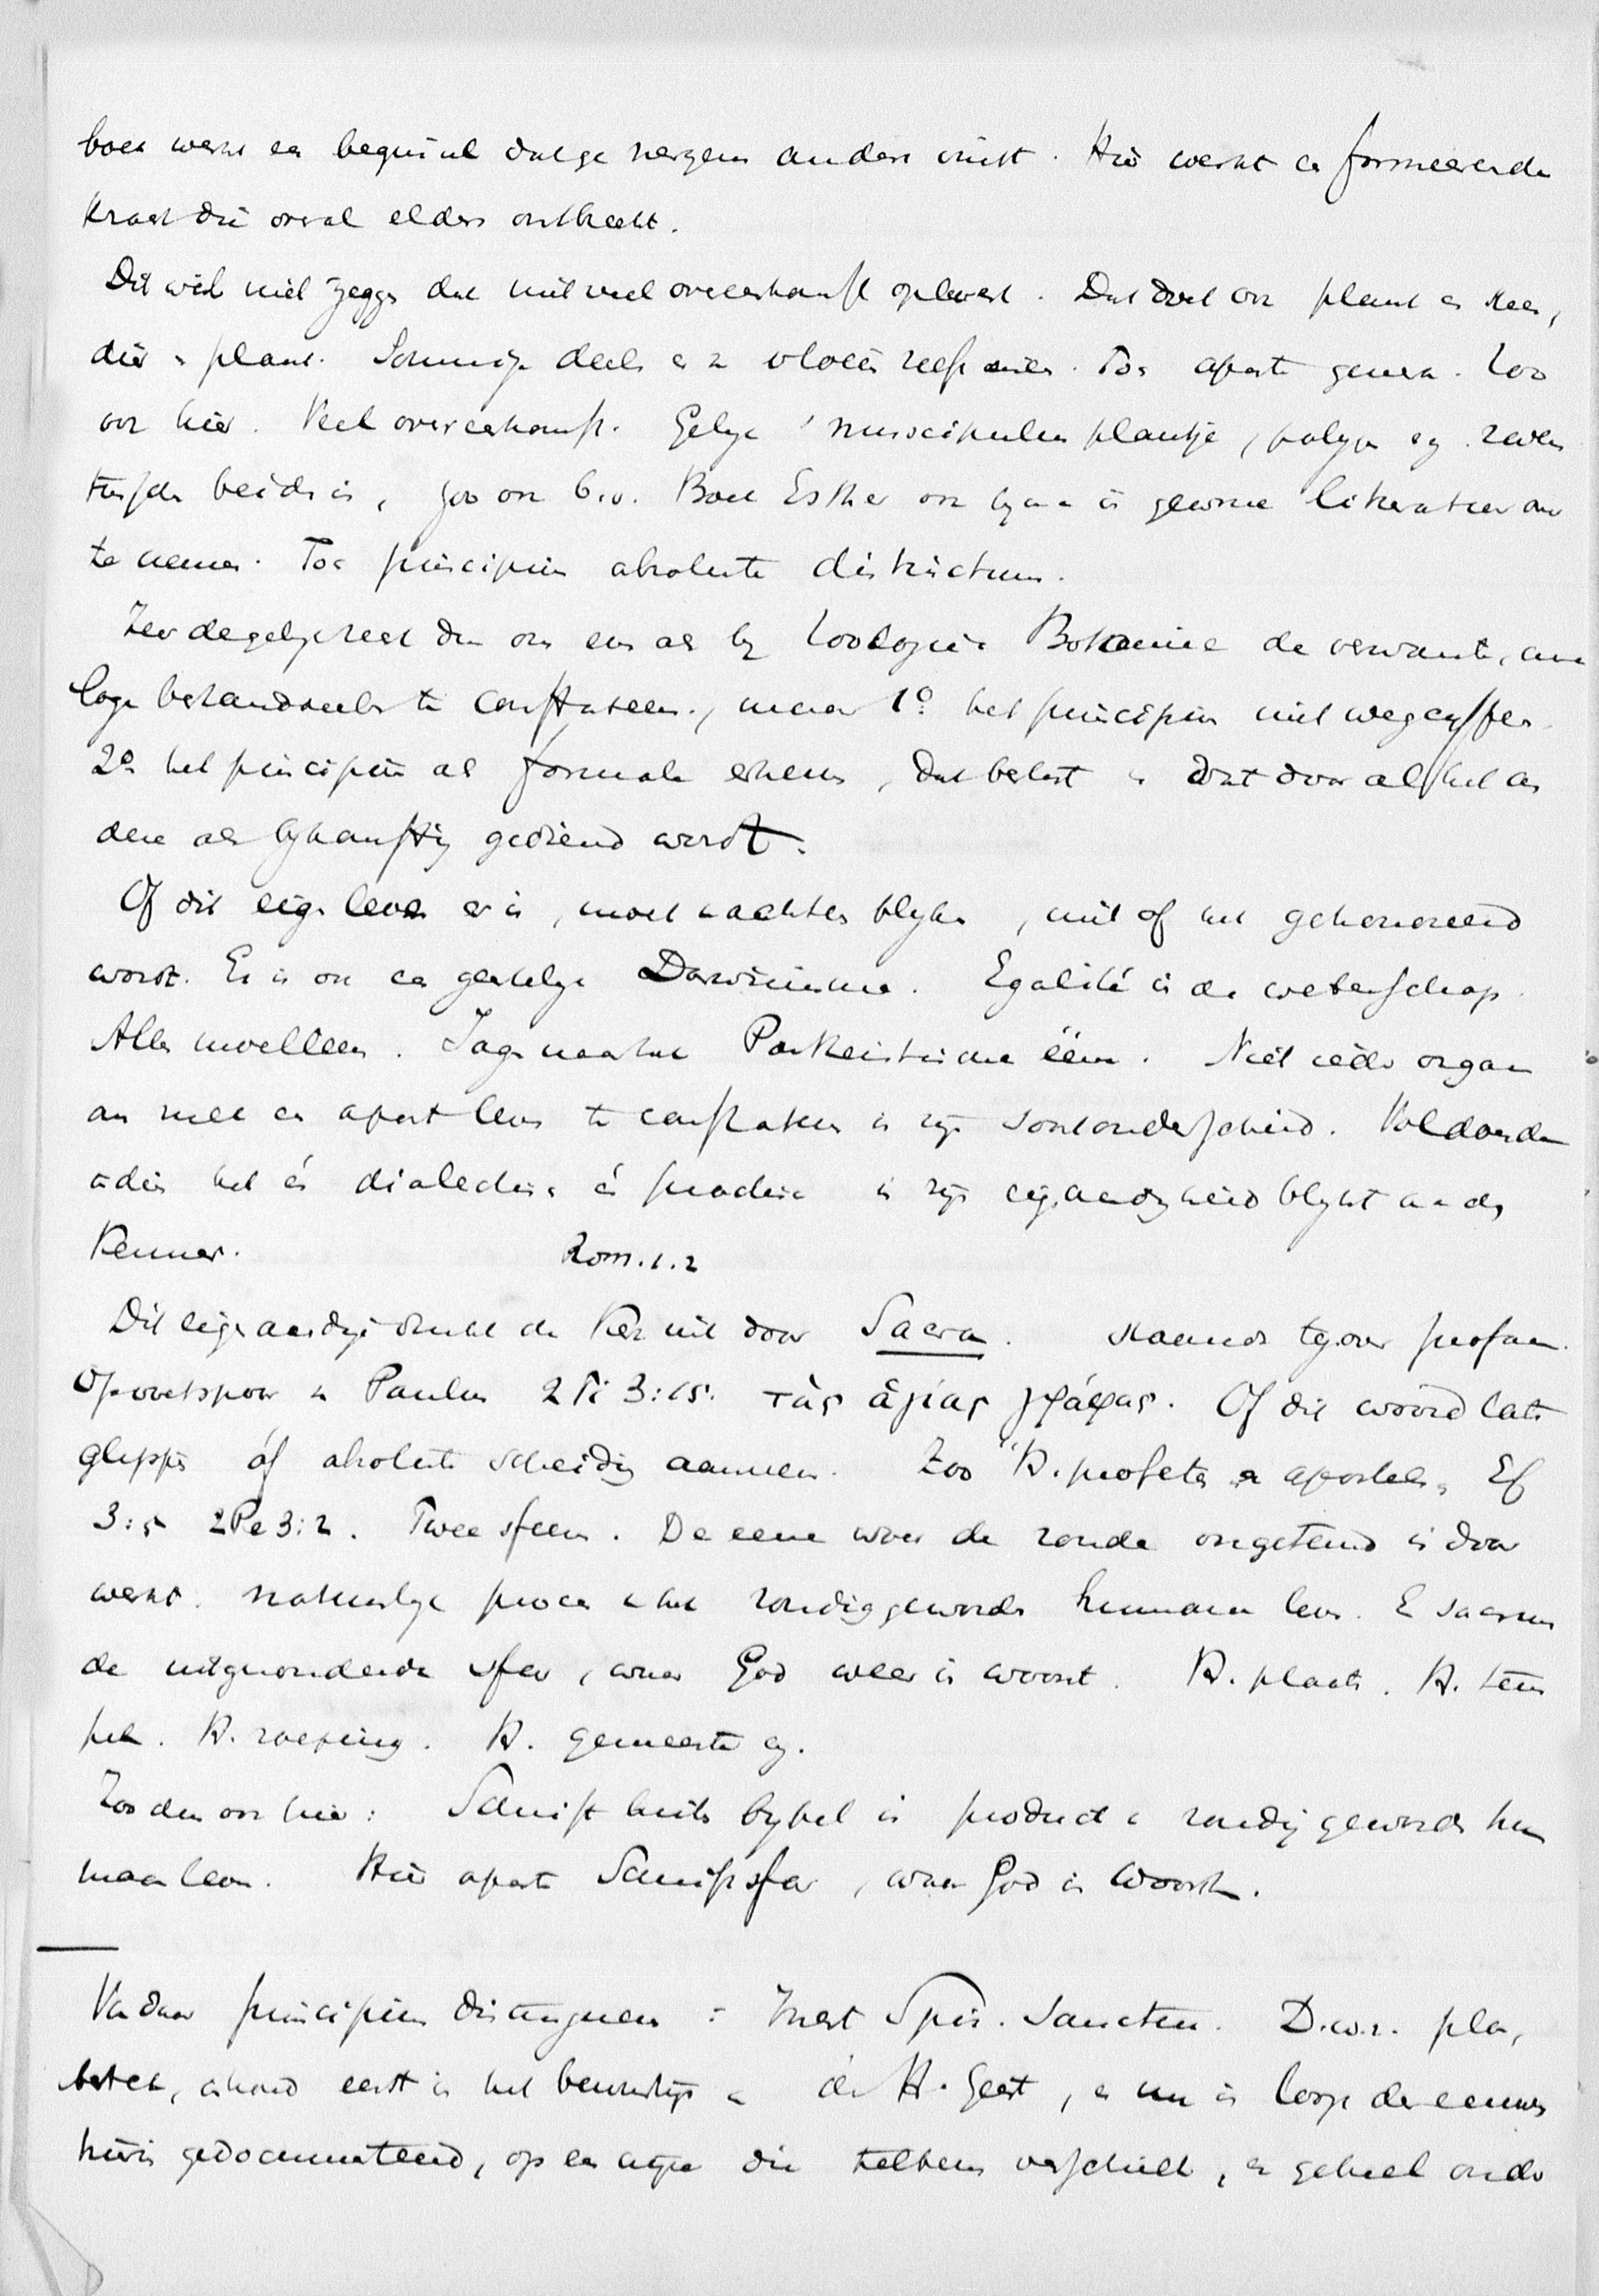 boek werkt een beginsel dat ge nergens anders vindt. Hier werkt een formeerende
kracht die overal elders ontbreekt.
Dit wil niet zeggen dat niet veel overeenkomst oplevert. Dat doet ook plant en steen,
dier en plant. Sommige deelen vloeien zelfs ineen. Toch aparte genera. Zoo
ook hier. Veel overeenkomst. Gelijk muscipula plantje, polyp
tusschen beide is, zoo ook b.v. Boek Esther ook bijna in gewone literatuur op
te nemen. Toch principium absolute distinctum.
Zeer degelijk heeft dan ook evenals bij Zoologie Botanie de verwante, ana
loge bestanddeelen te constateeren, maar 1º. het principium niet wegcijferen
2º. het principium als formale erkennen, dat beheerscht en dat door al het an
dere als bijkomstig gediend wordt.
Of dit eigen leven er is, moet in achter blijken, niet of het gehonoreerd
wordt. Er is ook een geestelijk Darwinisme. Egalité in de wetenschap.
Alles nivelleeren. Jagen naar het Pantheistische ééne. Niet ieder orgaan
om een apart leven te constateeren in zijn soortonderscheid. Voldoende
indien het én dialectice én practice in zijn eigenaardigheid blijkt aan den
Kenner. Rom. 1.2
Dit eigenaardige drukt de Kerk uit door Sacra. staande tegenover profaan.
Op voetspoor van Paulus 2 Ti 3:15. τὰς ἁγίας γράφας. Of dit woord laten
glippen óf absolute scheiding aannemen. Zoo "H. profeten en apostelen" Ef
3:5 2 Pe 3:2. Twee sferen. De eene waar de zonde ongetemd in door
werkt. natuurlijk proces van het zondig geworden humane leven. En sacrum
de uitgezonderde sfeer, waar God weer in woont. H. plaats. H. tem
pel. H. roeping. H. gemeente
Zoo dan ook hier: Schrift buiten bijbel is product van zondig geworden hu
maan leven. Hier aparte Schriftsfeer, waar God in woont.
Van daar principium distinguens: Inest Spir. Sanctus. D.w.z.
inhoud eerst in het bewustzijn van den H. Geest, en nu in loop der eeuwen
hierin gedocumenteerd, op een wijze die telkens verschilt, en geheel onder